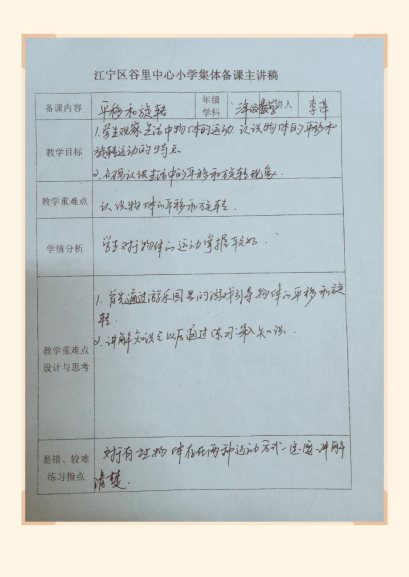 江宁区谷里中心小学集体备课主讲稿
备课内容 平移和旋转 年级学科 数学 主讲人 李萍
教学目标
1.学生观察生活中物体的运动.认识物体的平移和
旋转运动的特点
2.
认识生活中的平移和旋转现象.
教学重难点 认识物体的平移和旋转.
学情分析 学生对物体的运动掌握较好.
教学重难点
设计与思考
1.首先通过游乐园里的游戏引导物体的平移和旋
转.
2.讲解知识
以后通过练习
易错、较难
练习指点
对有些物体存在两种运动方式一定要讲解
清楚.